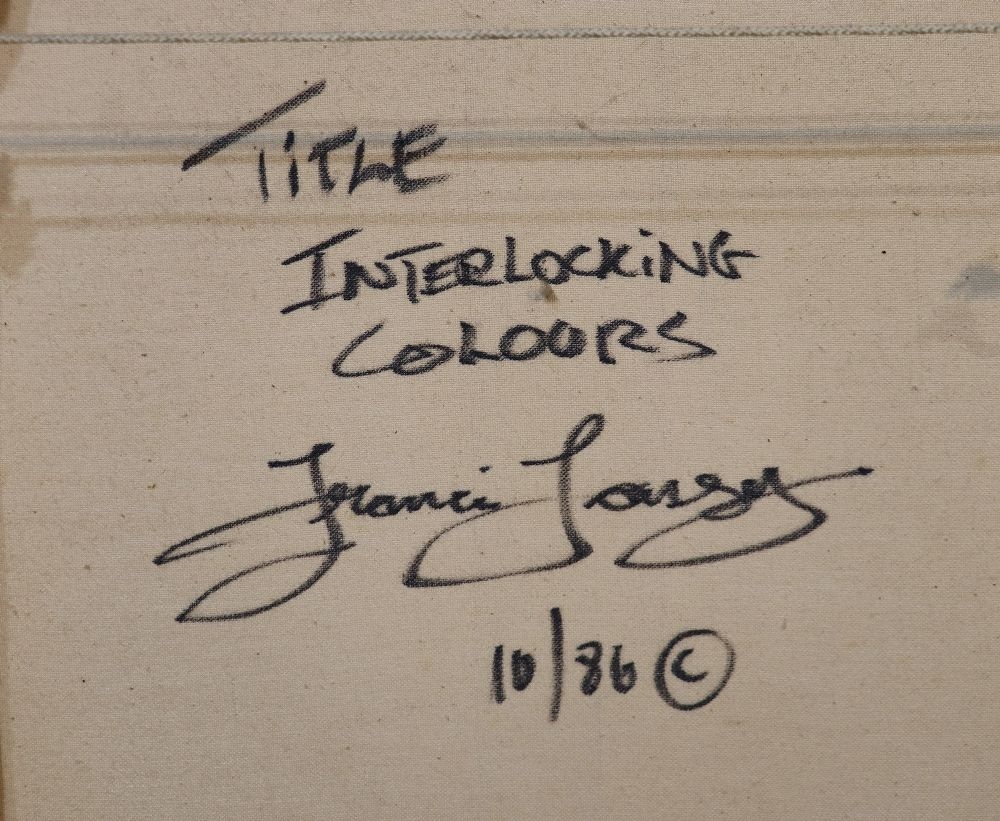 TiTLE
INTERLOCKiNG
COLOURS
Franci
10/86 ©